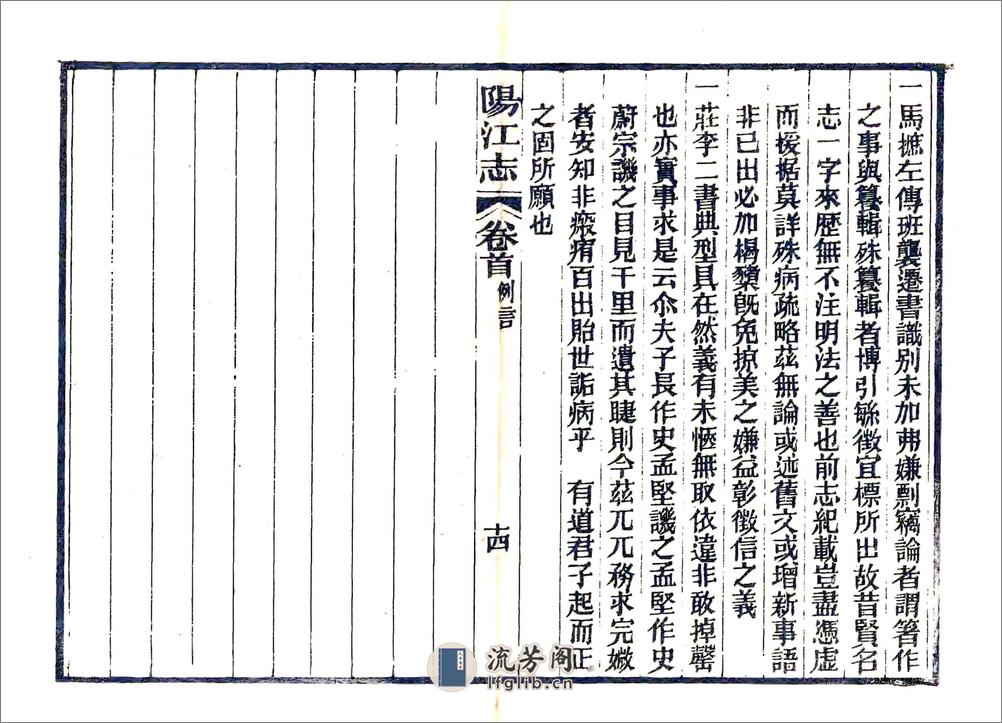 一馬摭左傳班襲遷書識別未加弗嫌剽竊論者謂箸作
之事與纂輯殊纂輯者博引緐徵宜標所出故昔賢名
志一字來歷無不注明法之善也前志紀載豈盡憑虛
而援据莫詳殊病疏略茲無論或述舊文或增新事語
非已出必加楬櫫旣免掠美之嫌益彰徵信之義
一莊李二書典型具在然義有未愜無取依違非敢掉罄
也亦實事求是云尒夫子長作史孟堅譏之孟堅作史
蔚宗譏之目見千里而遺其睫則今茲兀兀務求完媺
者安知非瘢痏百出貽世詬病乎　有道君子起而正
之固所願也
陽江志 卷首 例言 十四
流芳阁
lfglib.cn